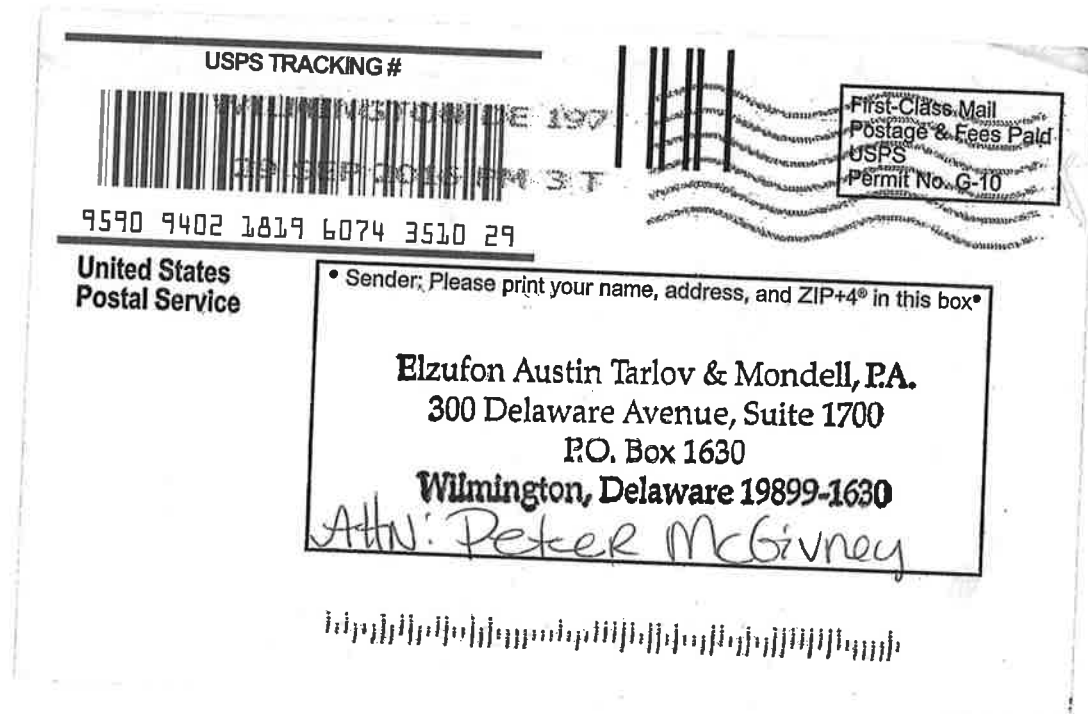 USPS TRACKING #
WILMINGTON DE 197
29 SEP 2016 PM 3 T
9590 9402 1819 6074 3510 29
First-Class Mail
Postage & Fees Paid
USPS
Permit No. G-10
United States
Postal Service
• Sender: Please print your name, address, and ZIP+4® in this box•
Elzufon Austin Tarlov & Mondell, P.A.
300 Delaware Avenue, Suite 1700
P.O. Box 1630
Wilmington, Delaware 19899-1630
Attn: Peter McGivney